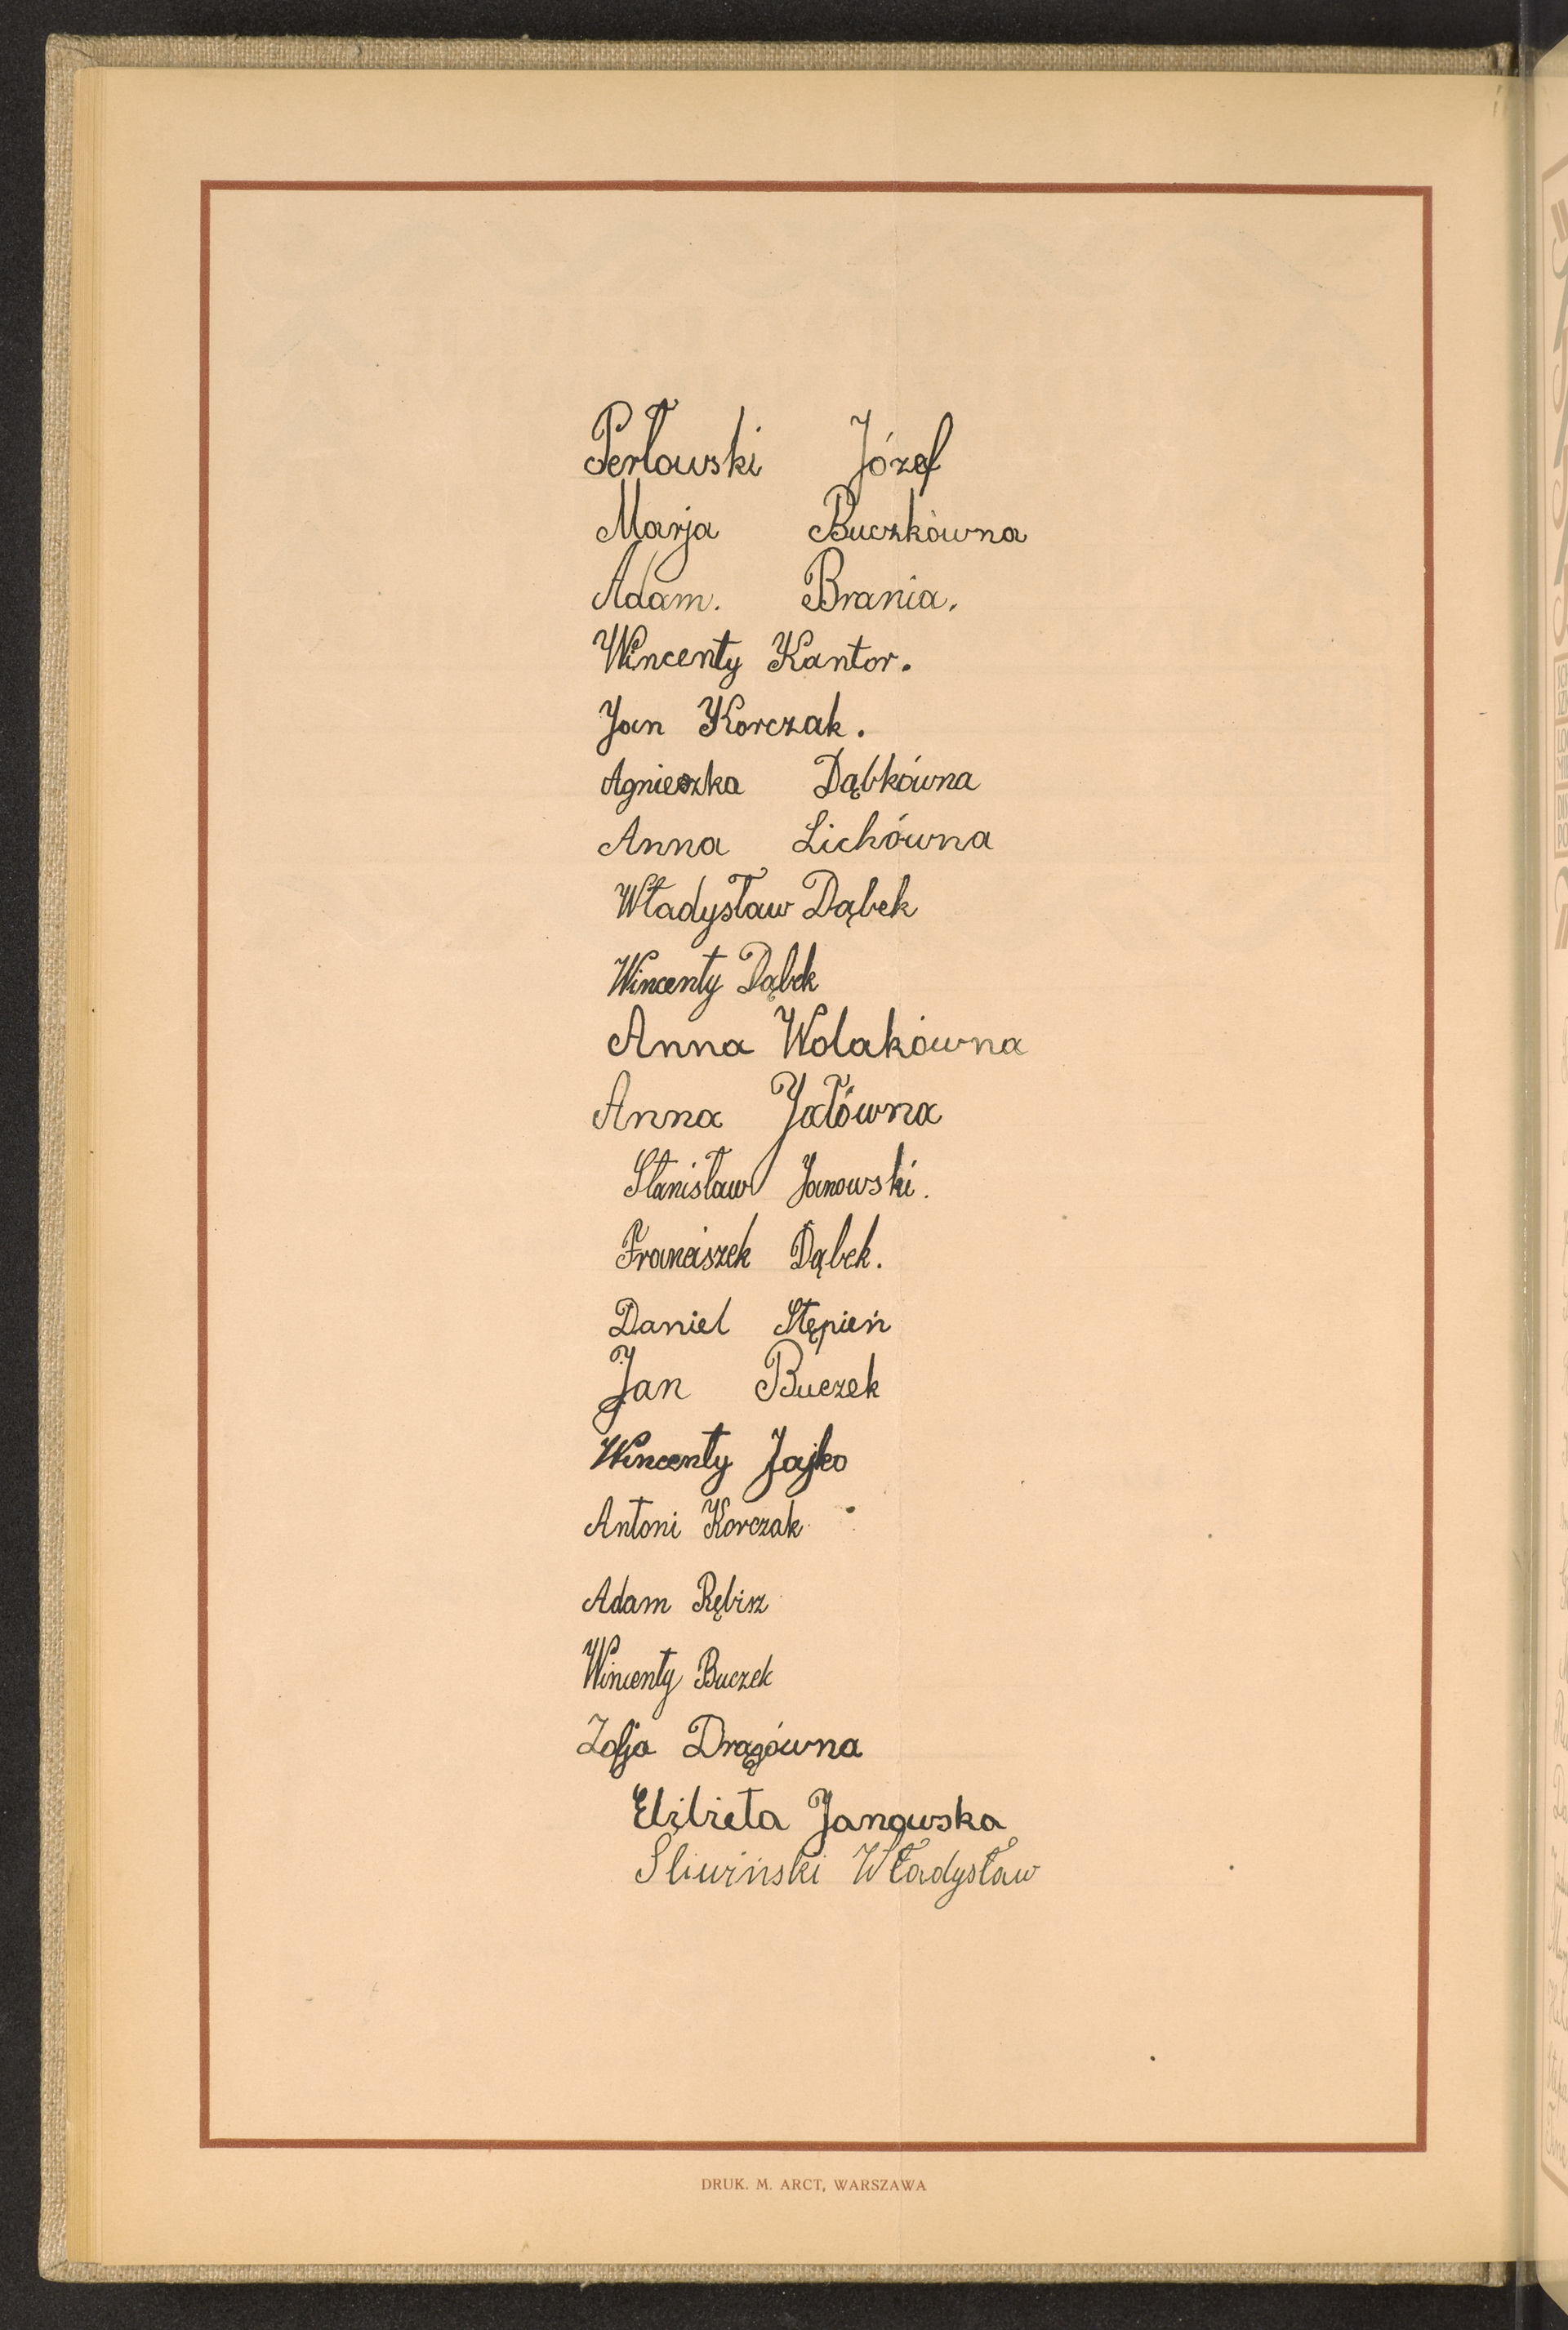 Perłowski Józef
Marja Buczkówna
Adam. Brania.
Wincenty Kantor.
Jan Korczak.
Agnieszka Dąbkówna
Anna Lichówna
Władysław Dąbek
Wincenty Dąbek
Anna Wolakówna
Anna Jałówna
Stanisław Janowski.
Franciszek Dąbek.
Daniel Stępień
Jan Buczek
Wincenty Jajko
Antoni Korczak
Adam Rębisz
Wincenty Buczek
Zofja Drągówna
Elżbieta Janowska
Śliwiński Władysław
DRUK. M. ARCT, WARSZAWA